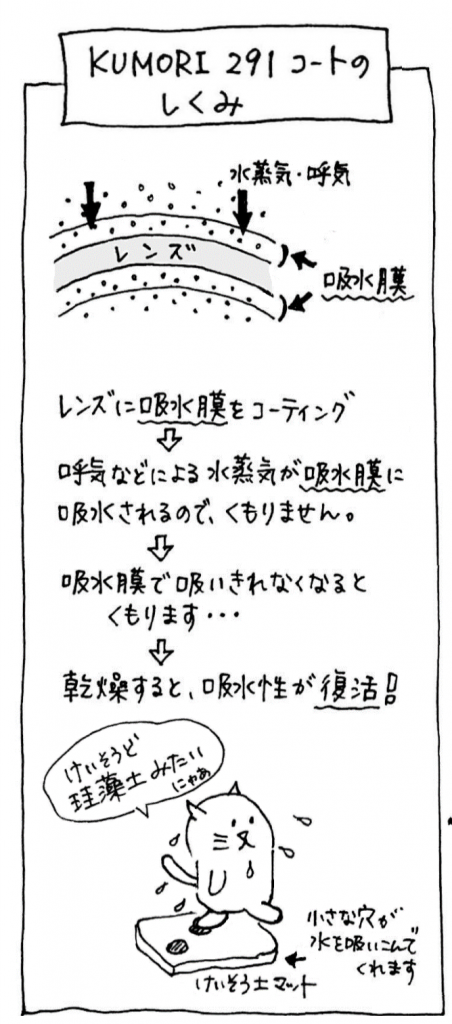 KUMORI 291 コートの
しくみ
水蒸気・呼気
レンズ
吸水膜
レンズに吸水膜をコーティング
⇩
呼気などによる水蒸気が吸水膜に
吸水されるので、くもりません。
⇩
吸水膜で吸いきれなくなると
くもります・・・
⇩
乾燥すると、吸水性が復活!!
けいそうど
珪藻土みたい
にゃあ
小さな穴が
水を吸いこんで
くれます
けいそう土マット